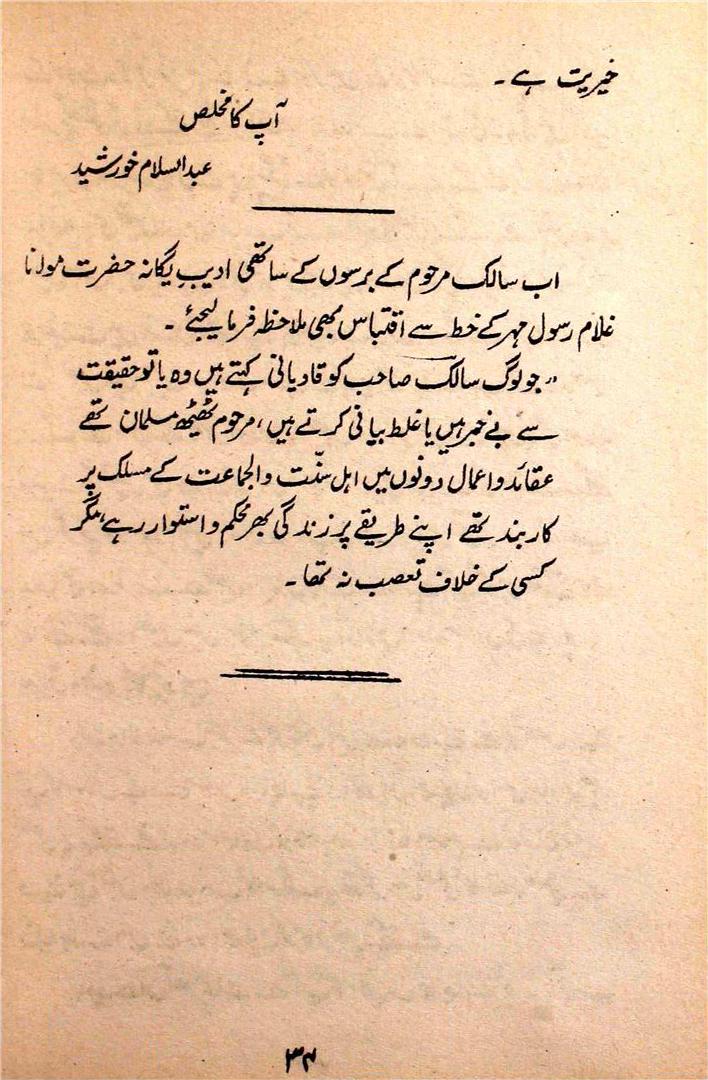 خیریت ہے۔
آپ کا مخلص
عبدالسلام خورشید
اب سالک مرحوم کے برسوں کے ساتھی ادیبِ یگانہ حضرت مولانا
غلام رسول مہر کے خط سے اقتباس بھی ملاحظہ فرما لیجئے۔
"جو لوگ سالک صاحب کو قادیانی کہتے ہیں وہ یا تو حقیقت
سے بے خبر ہیں یا غلط بیانی کرتے ہیں، مرحوم ٹھیٹھ مسلمان تھے
عقائد و اعمال دونوں میں اہل سنّت والجماعت کے مسلک پر
کاربند تھے اپنے طریقے پر زندگی بھر محکم و استوار رہے، مگر
کسی کے خلاف تعصب نہ تھا۔
۳۴